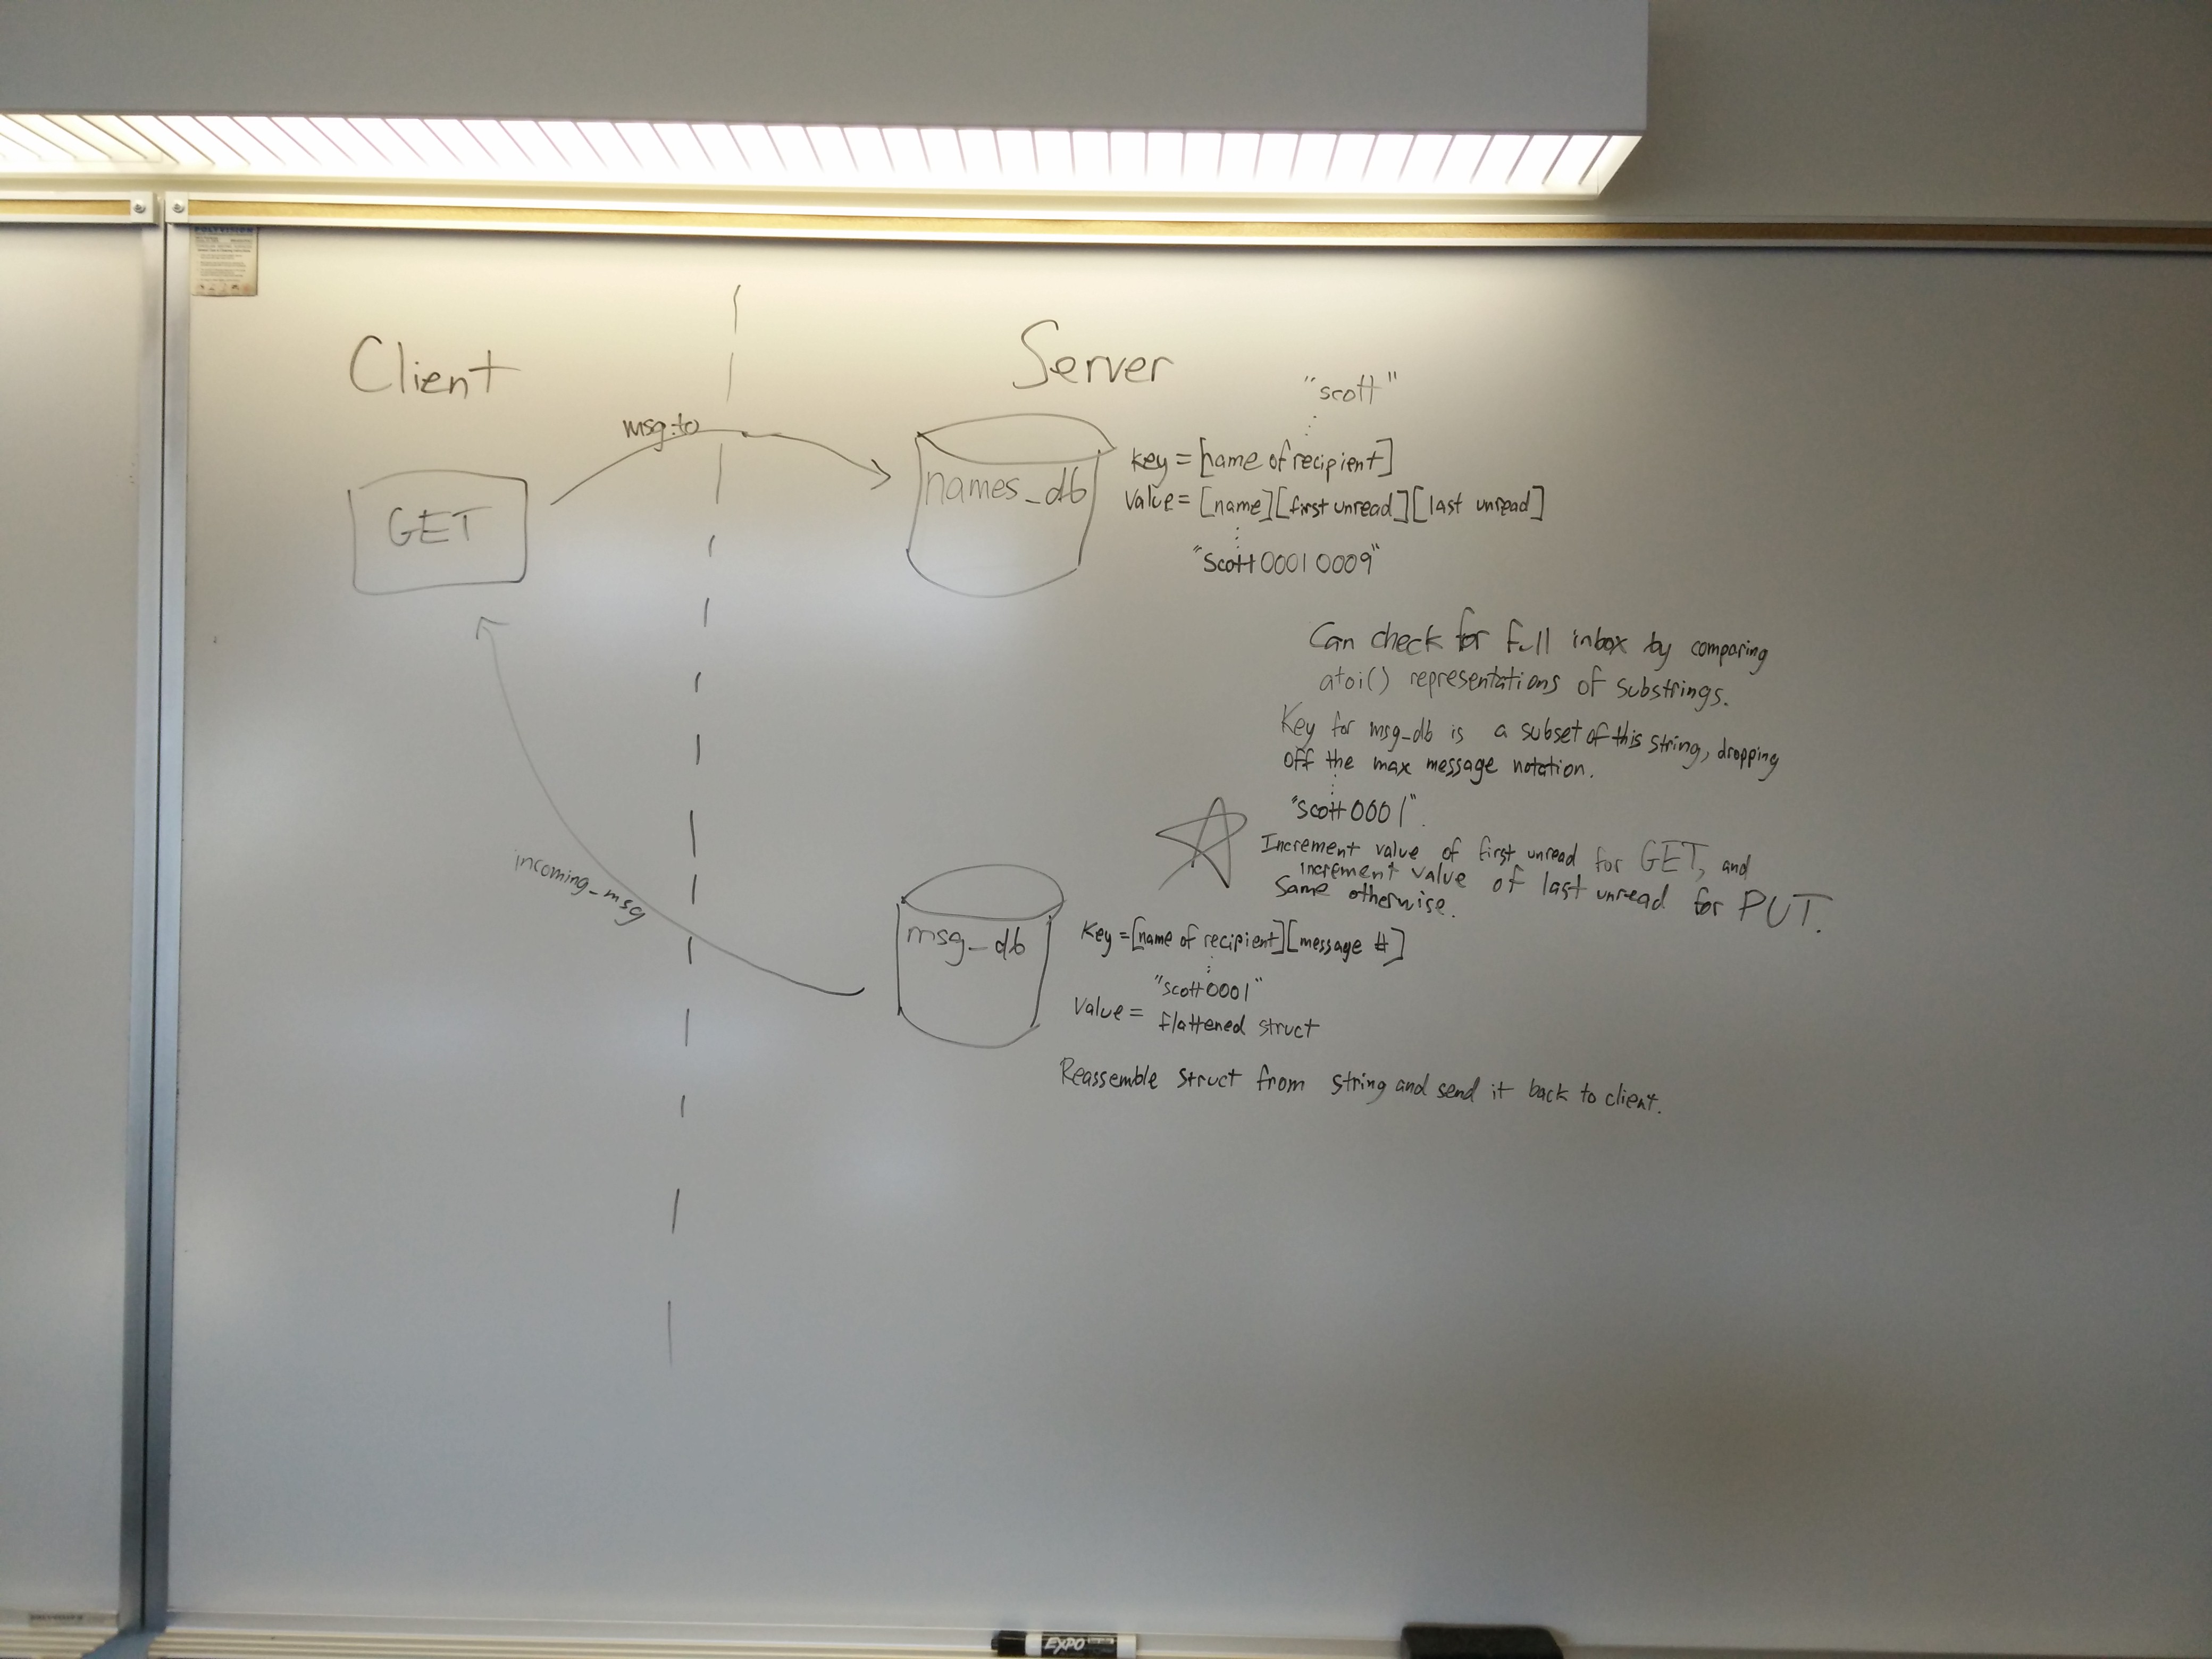 POLYVISION
Client
Server
"scott"
msg.to
GET
names_db
Key = [name of recipient]
Value = [name][first unread][last unread]
"scott00010009"
Can check for full inbox by comparing
atoi() representations of substrings.
Key for msg_db is a subset of this string, dropping
off the max message notation.
"scott0001".
Increment value of first unread for GET, and
increment value of last unread for PUT.
Same otherwise.
incoming_msg
msg_db
Key = [name of recipient][message #]
"scott0001"
Value = flattened struct
Reassemble struct from string and send it back to client.
EXPO